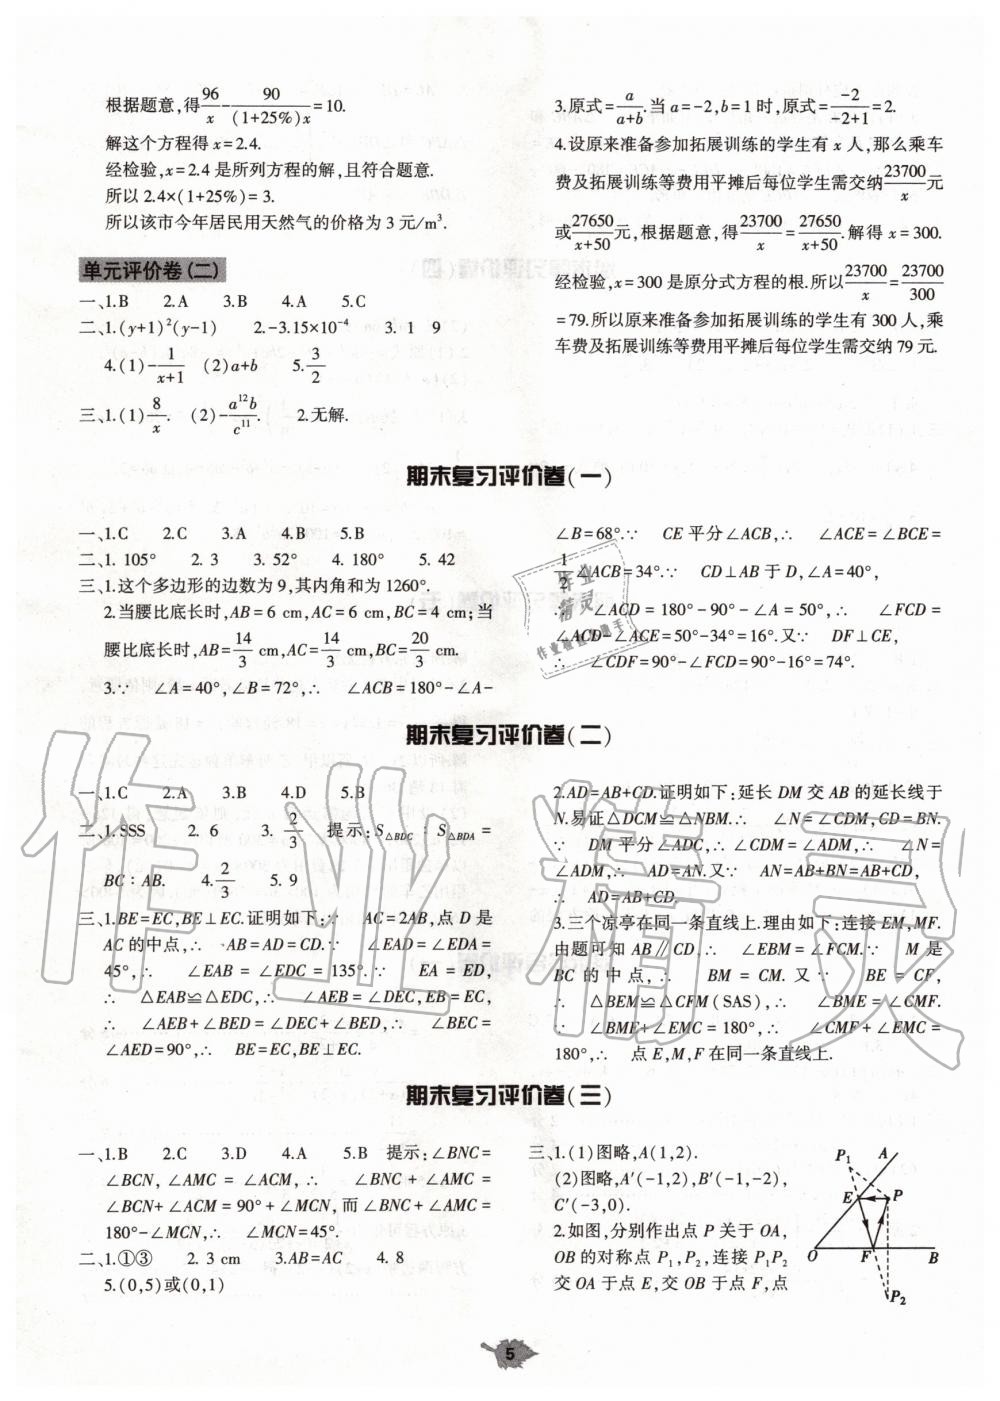 根据题意,得96/x-90/((1+25%)x)=10.
解这个方程得x=2.4.
经检验,x=2.4是所列方程的解,且符合题意.
所以2.4×(1+25%)=3.
所以该市今年居民用天然气的价格为3元/m³.
单元评价卷(二)
一、1.B 2.A 3.B 4.A 5.C
二、1.(y+1)²(y-1) 2.-3.15×10⁻⁴ 3. 1 9
4.(1)-1/(x+1) (2)a+b 5.3/2
三、1.(1)8/x. (2)-a¹²b/c¹¹. 2.无解.
3.原式=a/(a+b).当a=-2,b=1时,原式=-2/(-2+1)=2.
4.设原来准备参加拓展训练的学生有x人,那么乘车
费及拓展训练等费用平摊后每位学生需交纳23700/x元
或27650/(x+50)元,根据题意,得23700/x=27650/(x+50).解得x=300.
经检验,x=300是原分式方程的根.所以23700/x=23700/300
=79.所以原来准备参加拓展训练的学生有300人,乘
车费及拓展训练等费用平摊后每位学生需交纳79元.
期末复习评价卷(一)
一、1.C 2.C 3.A 4.B 5.B
二、1. 105° 2. 3 3. 52° 4. 180° 5. 42
三、1.这个多边形的边数为9,其内角和为1260°.
2.当腰比底长时,AB=6 cm,AC=6 cm,BC=4 cm;当
腰比底短时,AB=14/3 cm,AC=14/3 cm,BC=20/3 cm.
3.∵ ∠A=40°,∠B=72°,∴ ∠ACB=180°-∠A-
∠B=68°.∵ CE平分∠ACB,∴ ∠ACE=∠BCE=
1/2∠ACB=34°.∵ CD⊥AB于D,∠A=40°,
∴ ∠ACD=180°-90°-∠A=50°,∴ ∠FCD=
∠ACD-∠ACE=50°-34°=16°.又∵ DF⊥CE,
∴ ∠CDF=90°-∠FCD=90°-16°=74°.
期末复习评价卷(二)
一、1.C 2.A 3.B 4.D 5.B
二、1.SSS 2. 6 3. 2/3 提示:S△BDC∶S△BDA=
BC∶AB. 4.2/3 5. 9
三、1.BE=EC,BE⊥EC.证明如下:∵ AC=2AB,点D是
AC的中点,∴ AB=AD=CD.∵ ∠EAD=∠EDA=
45°,∴ ∠EAB=∠EDC=135°.∵ EA=ED,
∴ △EAB≌△EDC,∴ ∠AEB=∠DEC,EB=EC,
∴ ∠AEB+∠BED=∠DEC+∠BED,∴ ∠BEC=
∠AED=90°,∴ BE=EC,BE⊥EC.
2.AD=AB+CD.证明如下:延长DM交AB的延长线于
N.易证△DCM≌△NBM.∴ ∠N=∠CDM,CD=BN.
∵ DM平分∠ADC,∴ ∠CDM=∠ADM,∴ ∠N=
∠ADM,∴ AD=AN.又∵ AN=AB+BN=AB+CD,
∴ AD=AB+CD.
3.三个凉亭在同一条直线上.理由如下:连接EM,MF.
由题可知AB∥CD,∴ ∠EBM=∠FCM.∵ M是
BC的中点,∴ BM=CM.又∵ BE=CF,
∴ △BEM≌△CFM(SAS),∴ ∠BME=∠CMF.
∵ ∠BME+∠EMC=180°,∴ ∠CMF+∠EMC=
180°,∴ 点E,M,F在同一条直线上.
期末复习评价卷(三)
一、1.B 2.C 3.D 4.A 5.B 提示:∠BNC=
∠BCN,∠AMC=∠ACM,∴ ∠BNC+∠AMC=
∠BCN+∠ACM=90°+∠MCN,而∠BNC+∠AMC=
180°-∠MCN,∴ ∠MCN=45°.
二、1.①③ 2. 3 cm 3.AB=AC 4. 8
5.(0,5)或(0,1)
三、1.(1)图略,A(1,2).
(2)图略,A′(-1,2),B′(-1,-2),
C′(-3,0).
2.如图,分别作出点P关于OA,
OB的对称点P₁,P₂,连接P₁P₂
交OA于点E,交OB于点F,点
P₁ A
E P
O F B
P₂
5
作业精灵
作业精灵